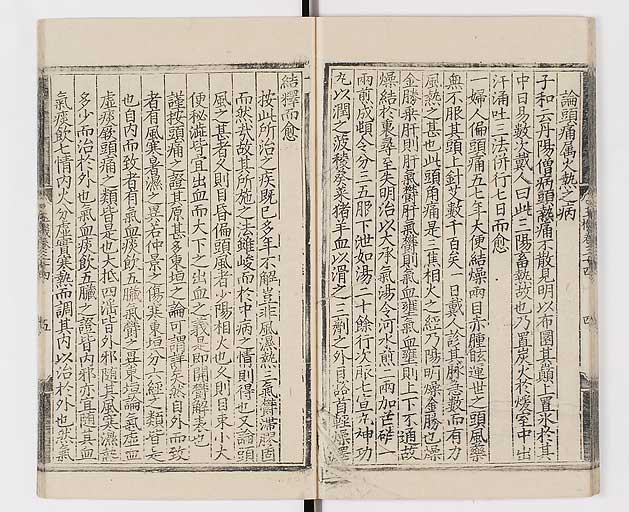 論頭痛屬火熱之病
子和云丹陽僧病頭熱痛不敢見明以布圍其巔上置氷於其
中日易數次戴人曰此三陽畜熱故也乃置炭火於煖室中出
汗涌吐三法併行七日而愈
一婦人偏頭痛五七年大便結燥兩目赤腫眩運世之頭風藥
無不服其頭上針艾數千百矣一日戴人診其脉急數而有力
風熱之甚也此頭角痛是三焦相火之經乃陽明燥金勝也燥
金勝乘肝則肝氣鬱肝氣鬱則氣血壅氣血壅則上下不通故
燥結於裏尋至失明治以大承氣湯令河水煎二兩加芒硝一
兩煎成頓令分三五服下泄如湯二十餘行次服七宣丸神功
丸以潤之菠稜葵菜猪羊血以滑之三劑之外目豁首輕燥澤
結釋而愈
按此所治之疾既已多年不解豈非風濕熱三氣鬱滯膠固
而然哉故其所施之法雖峻而於中病之情則得也又論頭
風之甚者久則目昏偏頭風者少陽相火也久則目束小大
便秘澁皆宜出血而大下之出血之義是即開鬱解表也
謹按頭痛之證其原甚多東垣之論可謂詳矣然自外而致
者有風寒暑濕之異右仲景之傷寒東垣分六經之類皆是
也自內而致者有氣血痰飲五臟氣鬱之異東垣論氣虛血
虛痰厥頭痛之類皆是也大抵四淫皆外邪隨其風寒濕熱
多少而治於外也氣血痰飲五臟之證皆內邪亦宜隨其血
氣痰飲七情內火分虛實寒熱而調其內以治於外也然氣